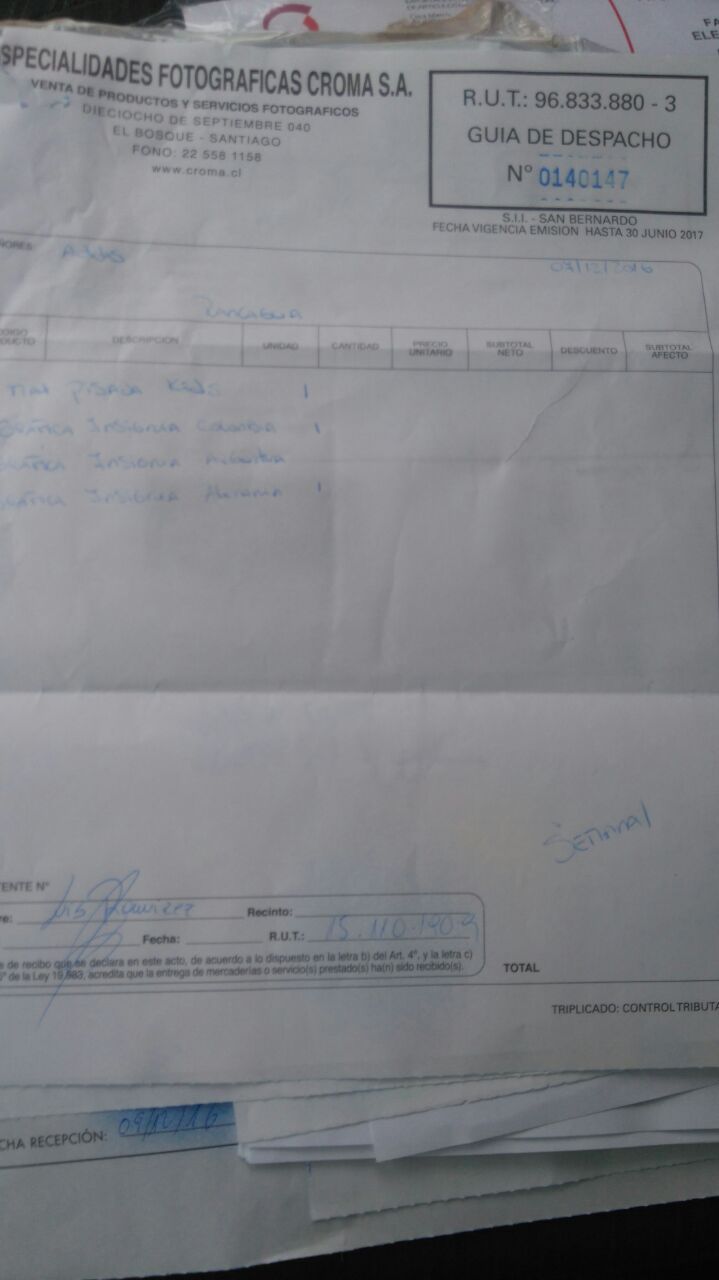 SPECIALIDADES FOTOGRAFICAS CROMA S.A.
VENTA DE PRODUCTOS Y SERVICIOS FOTOGRAFICOS
DIECIOCHO DE SEPTIEMBRE 040
EL BOSQUE - SANTIAGO
FONO: 22 558 1158
www.croma.cl
R.U.T.: 96.833.880 - 3
GUIA DE DESPACHO
N° 0140147
S.I.I. - SAN BERNARDO
FECHA VIGENCIA EMISION HASTA 30 JUNIO 2017
ÑORES: 
Rancagua
DIGO DUCTO DESCRIPCION UNIDAD CANTIDAD PRECIO UNITARIO SUBTOTAL NETO DESCUENTO SUBTOTAL AFECTO
Pisada Kids 1
GRÁFICA INSIGNIA Colombia 1
GRÁFICA INSIGNIA Argentina
GRÁFICA INSIGNIA Alemania 1
Semanal
ENTE N°
re: Luis Ramirez Recinto:
Fecha: R.U.T.: 15.110.190-9
e de recibo que se declara en este acto, de acuerdo a lo dispuesto en la letra b) del Art. 4°, y la letra c)
5° de la Ley 19.983, acredita que la entrega de mercaderías o servicio(s) prestado(s) ha(n) sido recibido(s).
TOTAL
TRIPLICADO: CONTROL TRIBUTA
CHA RECEPCIÓN: 09/12/16